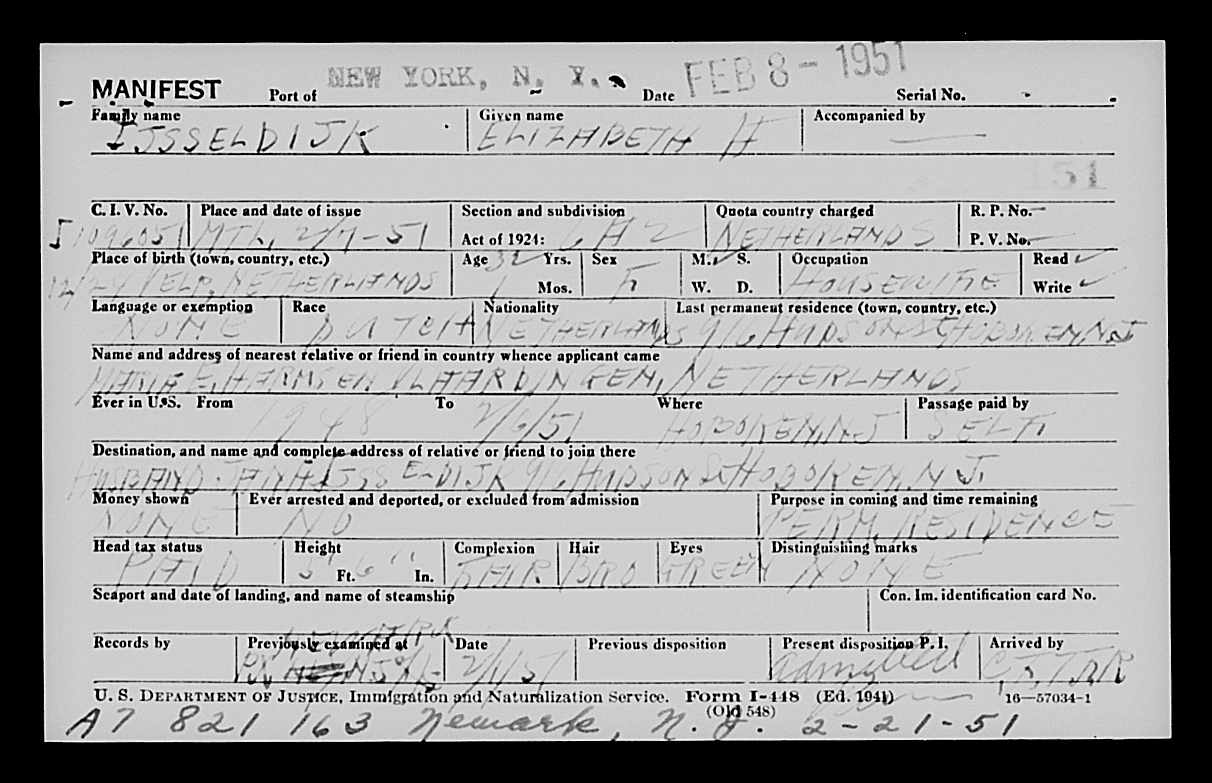 MANIFEST Port of NEW YORK, N. Y. Date FEB 8 - 1951 Serial No.
Family name Given name Accompanied by
IJSSELDIJK ELIZABETH H
51
C. I. V. No. Place and date of issue Section and subdivision Quota country charged R. P. No.
Act of 1924: P. V. No.
I 1096051 MTL. 2/7-51 6 A 2 NETHERLANDS
Place of birth (town, country, etc.) Age Yrs. Sex M. S. Occupation Read
Mos. W. D. Write
VELP, NETHERLANDS F HOUSEWIFE
Language or exemption Race Nationality Last permanent residence (town, country, etc.)
NONE DUTCH NETHERLANDS 916 HUDSON St HOBOKEN, NJ
Name and address of nearest relative or friend in country whence applicant came
MARIA E. HARMSEN VLAARDINGEN, NETHERLANDS
Ever in U.S. From To Where Passage paid by
1948 2/6/51 HOBOKEN, NJ SELF
Destination, and name and complete address of relative or friend to join there
HUSBAND IJSSELDIJK 916 HUDSON St HOBOKEN, N J.
Money shown Ever arrested and deported, or excluded from admission Purpose in coming and time remaining
NONE NO PERM. RESIDENCE
Head tax status Height Complexion Hair Eyes Distinguishing marks
PAID 5' Ft. 6" In. FAIR BRO GREEN NONE
Seaport and date of landing, and name of steamship Con. Im. identification card No.
Records by Previously examined at Date Previous disposition Present disposition P. I. Arrived by
NEWARK
NJ 2/1/51 Admitted
U. S. DEPARTMENT OF JUSTICE, Immigration and Naturalization Service. Form I-448 (Ed. 1941) 16—57034-1
(Old 548)
A7 821 163 Newark, N. J. 2-21-51